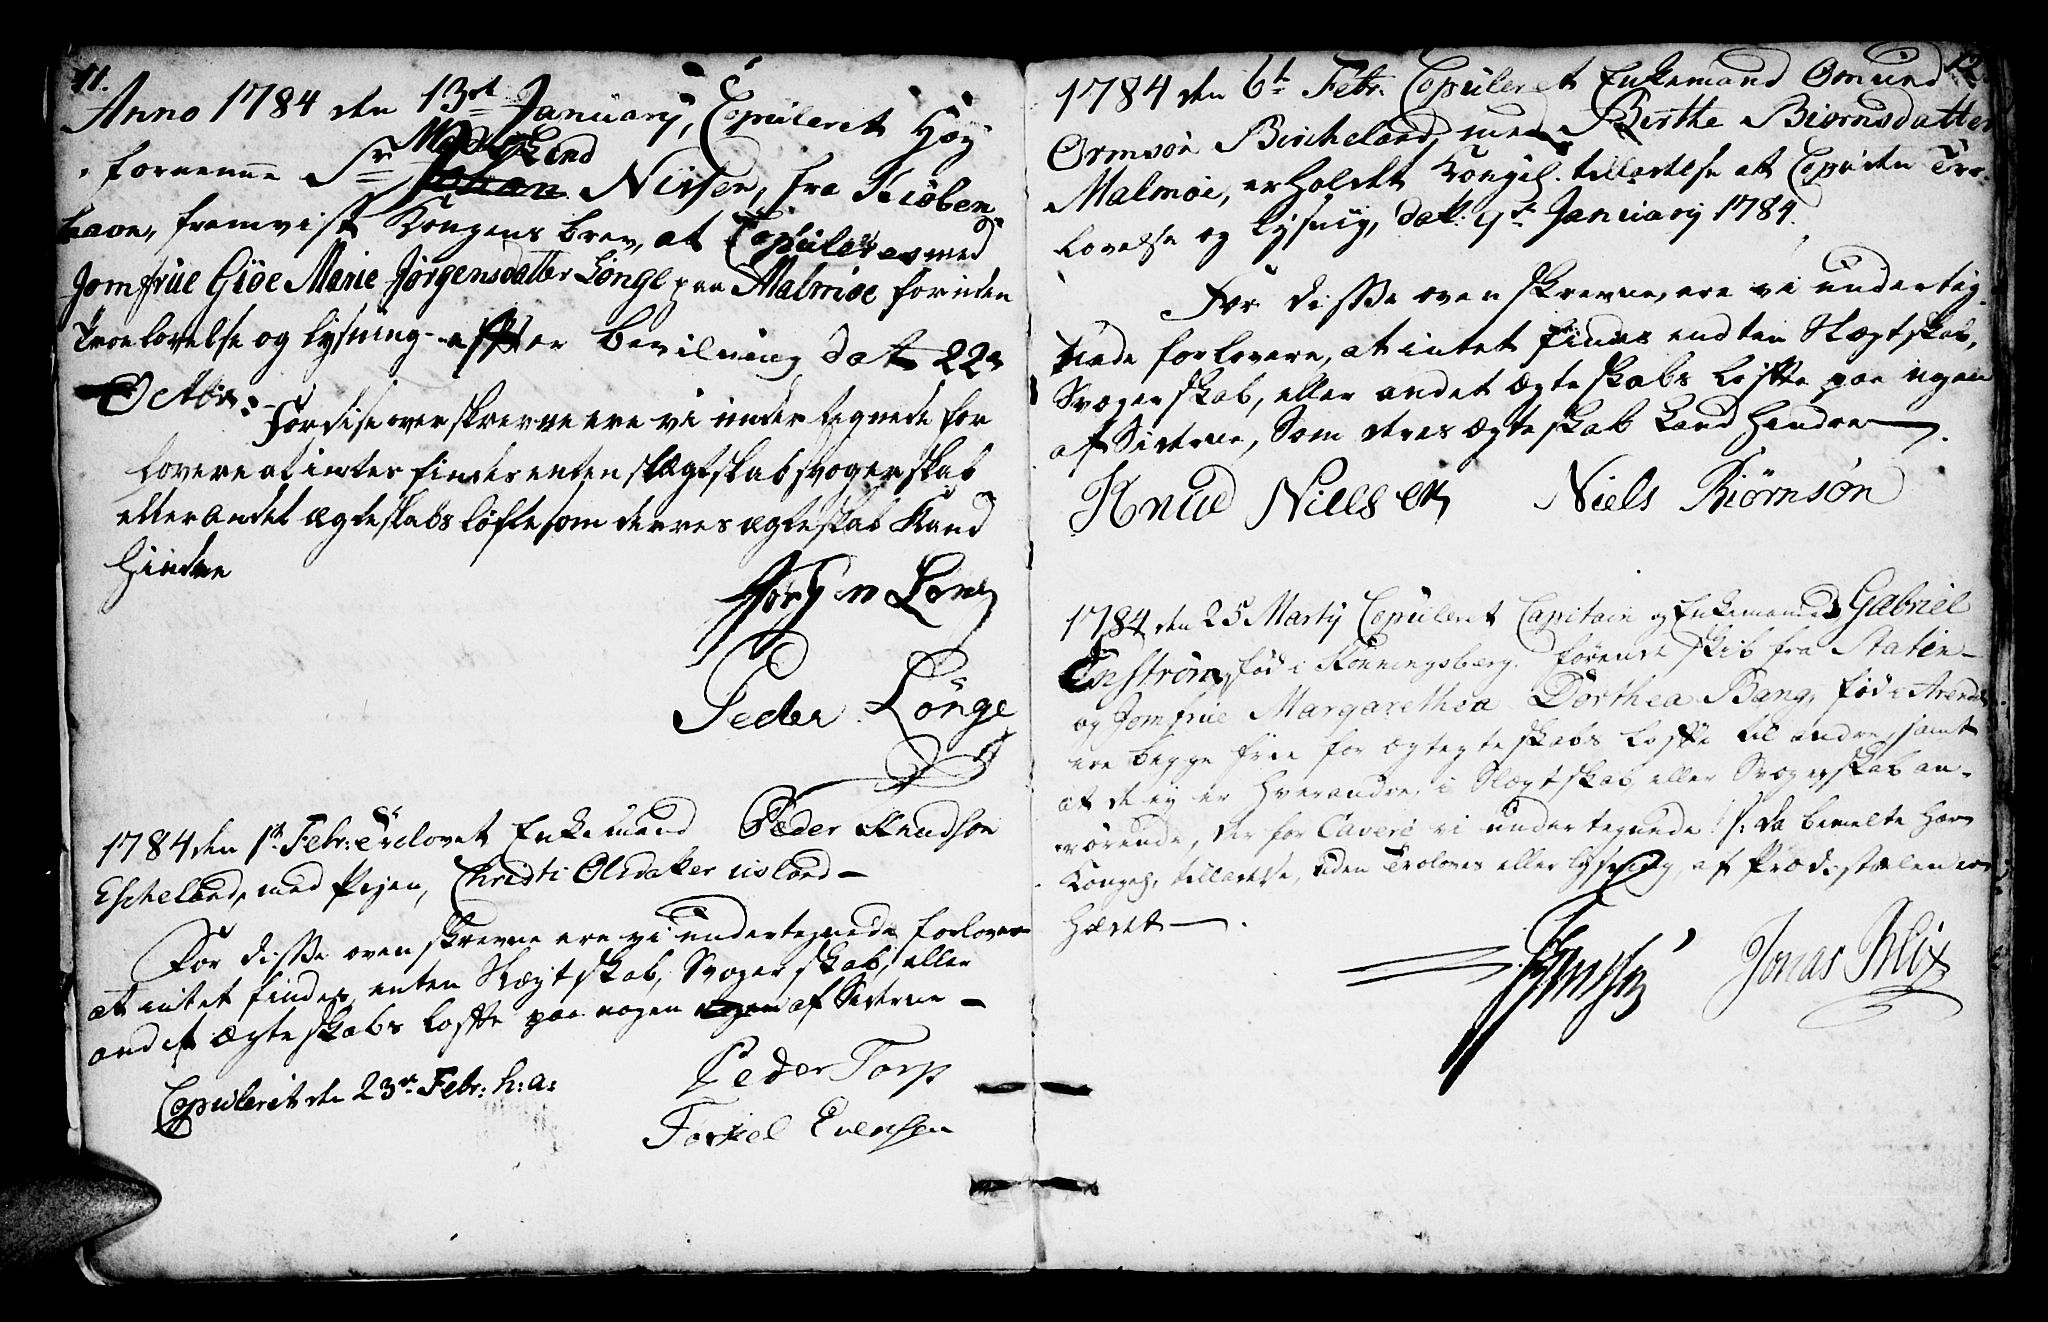 11.
Anno 1784 den 13de January, Copuleret Høy
fornemme Sr Madskind Johan Nissen, fra Kiøben
havn, fremvist Kongens brev, at Copuleres med
Jomfrue Giøe Marie Jørgensdatter Lønge paa Malmøe foruden
Troelovelse og lysning efter bevilning dat 22de
Octobr:
For dise overskrevne ere vi undertegnede for
lovere at intet findes enten slægtskab svogerskab
eller andet ægteskabs løfte som derres ægteskab Kand
hindre
Jørgen Long
Peder Lônge
1784 den 1st Febr: trolovet Enkemand Peder Knudsøn
Escheland, med Pigen, Christi Olsdatter
For disse ovenskrevne ere vi undertegnede forlovere
at intet findes enten Slægtskab, Svogerskab, eller
andet ægteskabs løffte paa nogen af Siderne —
Copuleret den 23de Febr: h: a:
Peder Torp
Torkel Evensen
12.
1784 den 6te Febr. Copuleret Enkemand Omund
Ormsøn Bircheland, med Birthe Biørnsdatter
Malmøe, erholdt Kongel. tilladelse at Cop: uden Tro-
lovelse og lysnig, dat: 9de January 1784.
For disse ovenskrevne, ere vi underteg
nede forlovere, at intet findes endten Slægtskab,
Svogerskab, eller andet ægteskabs løffte paa nogen
af Siderne, Som deres ægteskab kand hindre —.
Knud Nielsen Niels Biørnsøn
1784 den 25 Martij Copuleret Capitain og Enkemand Gabriel
Enstrøm, fød i Kønningsberg. førende skib fra Statin —
og Jomfrue Margarethea Dorthea Bang, fød i Arendal
ere begge frie for ægteskabs løffte til andre, samt
at de ey er hverandre, i Slægtskab eller Svogerskab an-
rørende, derfor Cavere vi undertegnede /: da bemelte har
Kongel. tilladelse, uden Trolovelse eller lysning, af Prædikestolen er
hædet —.
Jonas Blix